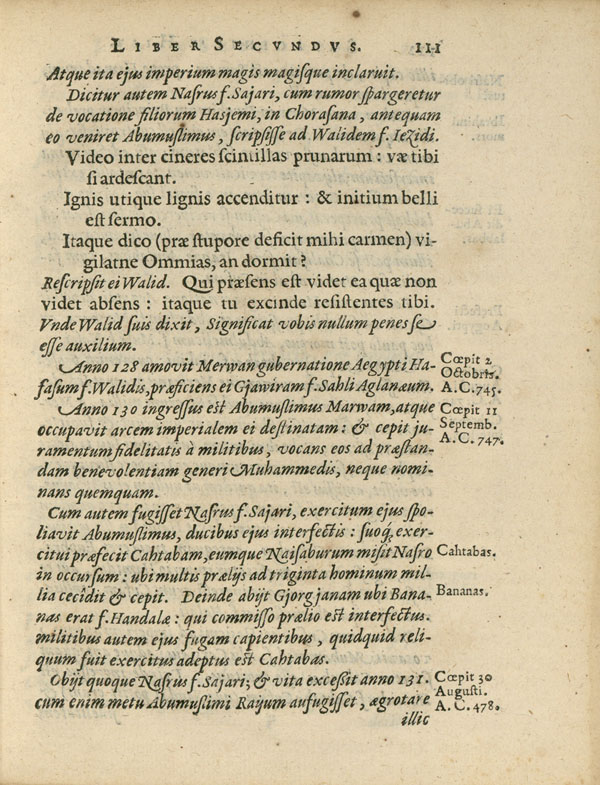 LIBER SECVNDVS. 111
Atque ita ejus imperium magis magiſque inclaruit.
Dicitur autem Naſrus f. Sajari, cum rumor ſpargeretur
de vocatione filiorum Hasjemi, in Choraſana, antequam
eo veniret Abumuſlimus, ſcripſiſſe ad Walidem f. Iezidi.
Video inter cineres ſcintillas prunarum : væ tibi
ſi ardeſcant.
Ignis utique lignis accenditur : & initium belli
eſt ſermo.
Itaque dico (præ ſtupore deficit mihi carmen) vi-
gilatne Ommias, an dormit?
Reſcripſit ei Walid. Qui præſens eſt videt ea quæ non
videt abſens : itaque tu excinde reſiſtentes tibi.
Vnde Walid ſuis dixit, Significat vobis nullum penes ſe
eſſe auxilium.
Anno 128 amovit Merwan gubernatione Aegypti Ha-
faſum f. Walidis, præficiens ei Gjawiram f. Sahli Aglanæum.
Cœpit 2
Octobris.
A.C. 745.
Anno 130 ingreſſus eſt Abumuſlimus Marwam, atque
occupavit arcem imperialem ei deſtinatam : & cepit ju-
ramentum fidelitatis à militibus, vocans eos ad præſtan-
dam benevolentiam generi Muhammedis, neque nomi-
nans quemquam.
Cœpit 11
Septemb.
A.C. 747.
Cum autem fugiſſet Naſrus f. Sajari, exercitum ejus ſpo-
liavit Abumuſlimus, ducibus ejus interfectis : ſuoq́; exer-
citui præfecit Cahtabam, eumque Naiſaburum miſit Naſro
in occurſum : ubi multis prælijs ad triginta hominum mil-
lia cecidit & cepit. Deinde abijt Gjorgjanam ubi Bana-
nas erat f. Handalæ : qui commiſſo prælio eſt interfectus.
militibus autem ejus fugam capientibus, quidquid reli-
quum fuit exercitus adeptus eſt Cahtabas.
Cahtabas.
Bananas.
Obijt quoque Naſrus f. Sajari; & vita exceſſit anno 131.
cum enim metu Abumuſlimi Raijum aufugiſſet, ægrotare
Cœpit 30
Auguſti.
A.C. 478.
illic